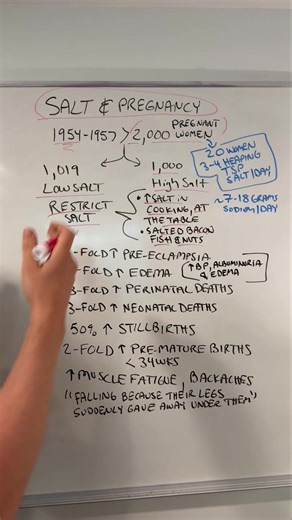 SALT & PREGNANCY
1954-1957 > 2,000 PREGNANT WOMEN
1,019
LOW SALT
RESTRICT
SALT
1,000
High Salt
• ↑ SALT IN
COOKING, AT
THE TABLE
• SALTED BACON
FISH & NUTS
20 WOMEN
3-4 HEAPING
TSP
SALT/DAY
~7-18 GRAMS
SODIUM/DAY
-FOLD ↑ PRE-ECLAMPSIA
-FOLD ↑ EDEMA
↑BP, ALBUMINURIA
& EDEMA
-FOLD ↑ PERINATAL DEATHS
-FOLD ↑ NEONATAL DEATHS
50% ↑ STILLBIRTHS
2-FOLD ↑ PRE-MATURE BIRTHS
< 34WKS
↑ MUSCLE FATIGUE, BACKACHES
"FALLING BECAUSE THEIR LEGS
SUDDENLY GAVE AWAY UNDER THEM"